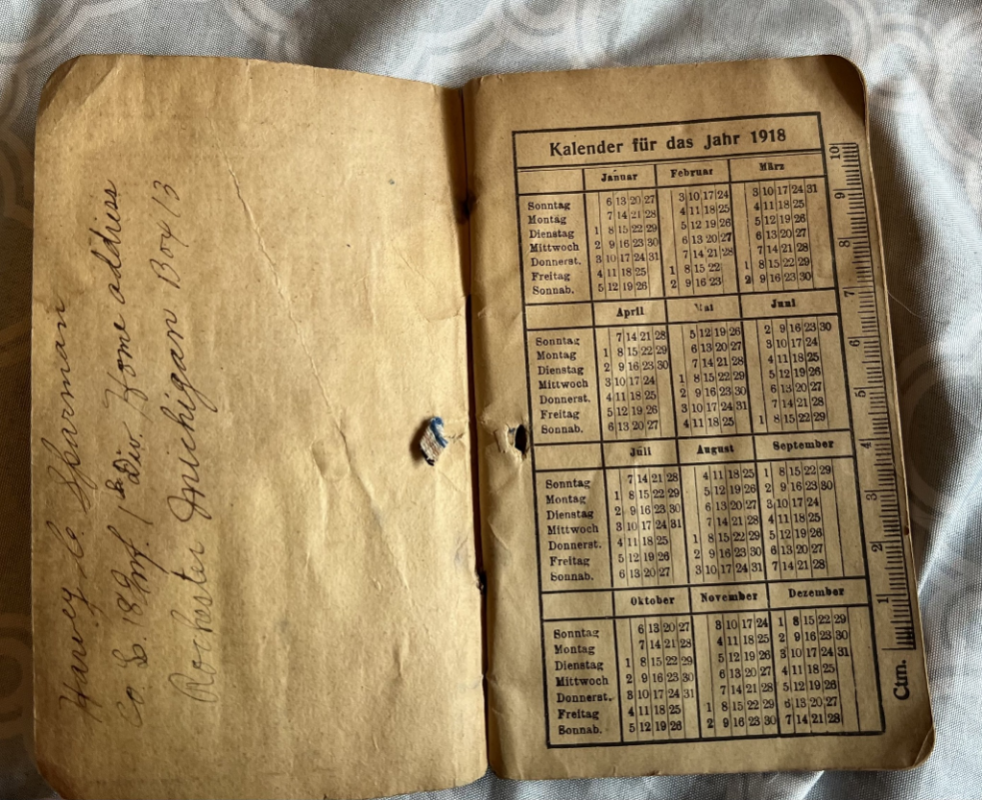 Harvey Sparman
Co 18 Inf. 1st Div. Home address
Rochester Michigan Box 13
Kalender für das Jahr 1918
Januar Februar März
Sonntag 6 13 20 27 3 10 17 24 3 10 17 24 31
Montag 7 14 21 28 4 11 18 25 4 11 18 25
Dienstag 1 8 15 22 29 5 12 19 26 5 12 19 26
Mittwoch 2 9 16 23 30 6 13 20 27 6 13 20 27
Donnerst. 3 10 17 24 31 7 14 21 28 7 14 21 28
Freitag 4 11 18 25 1 8 15 22 1 8 15 22 29
Sonnab. 5 12 19 26 2 9 16 23 2 9 16 23 30
April Mai Juni
Sonntag 7 14 21 28 5 12 19 26 2 9 16 23 30
Montag 1 8 15 22 29 6 13 20 27 3 10 17 24
Dienstag 2 9 16 23 30 7 14 21 28 4 11 18 25
Mittwoch 3 10 17 24 1 8 15 22 29 5 12 19 26
Donnerst. 4 11 18 25 2 9 16 23 30 6 13 20 27
Freitag 5 12 19 26 3 10 17 24 31 7 14 21 28
Sonnab. 6 13 20 27 4 11 18 25 1 8 15 22 29
Juli August September
Sonntag 7 14 21 28 4 11 18 25 1 8 15 22 29
Montag 1 8 15 22 29 5 12 19 26 2 9 16 23 30
Dienstag 2 9 16 23 30 6 13 20 27 3 10 17 24
Mittwoch 3 10 17 24 31 7 14 21 28 4 11 18 25
Donnerst. 4 11 18 25 1 8 15 22 29 5 12 19 26
Freitag 5 12 19 26 2 9 16 23 30 6 13 20 27
Sonnab. 6 13 20 27 3 10 17 24 31 7 14 21 28
Oktober November Dezember
Sonntag 6 13 20 27 3 10 17 24 1 8 15 22 29
Montag 7 14 21 28 4 11 18 25 2 9 16 23 30
Dienstag 1 8 15 22 29 5 12 19 26 3 10 17 24 31
Mittwoch 2 9 16 23 30 6 13 20 27 4 11 18 25
Donnerst. 3 10 17 24 31 7 14 21 28 5 12 19 26
Freitag 4 11 18 25 1 8 15 22 29 6 13 20 27
Sonnab. 5 12 19 26 2 9 16 23 30 7 14 21 28
Ctm. 1 2 3 4 5 6 7 8 9 10